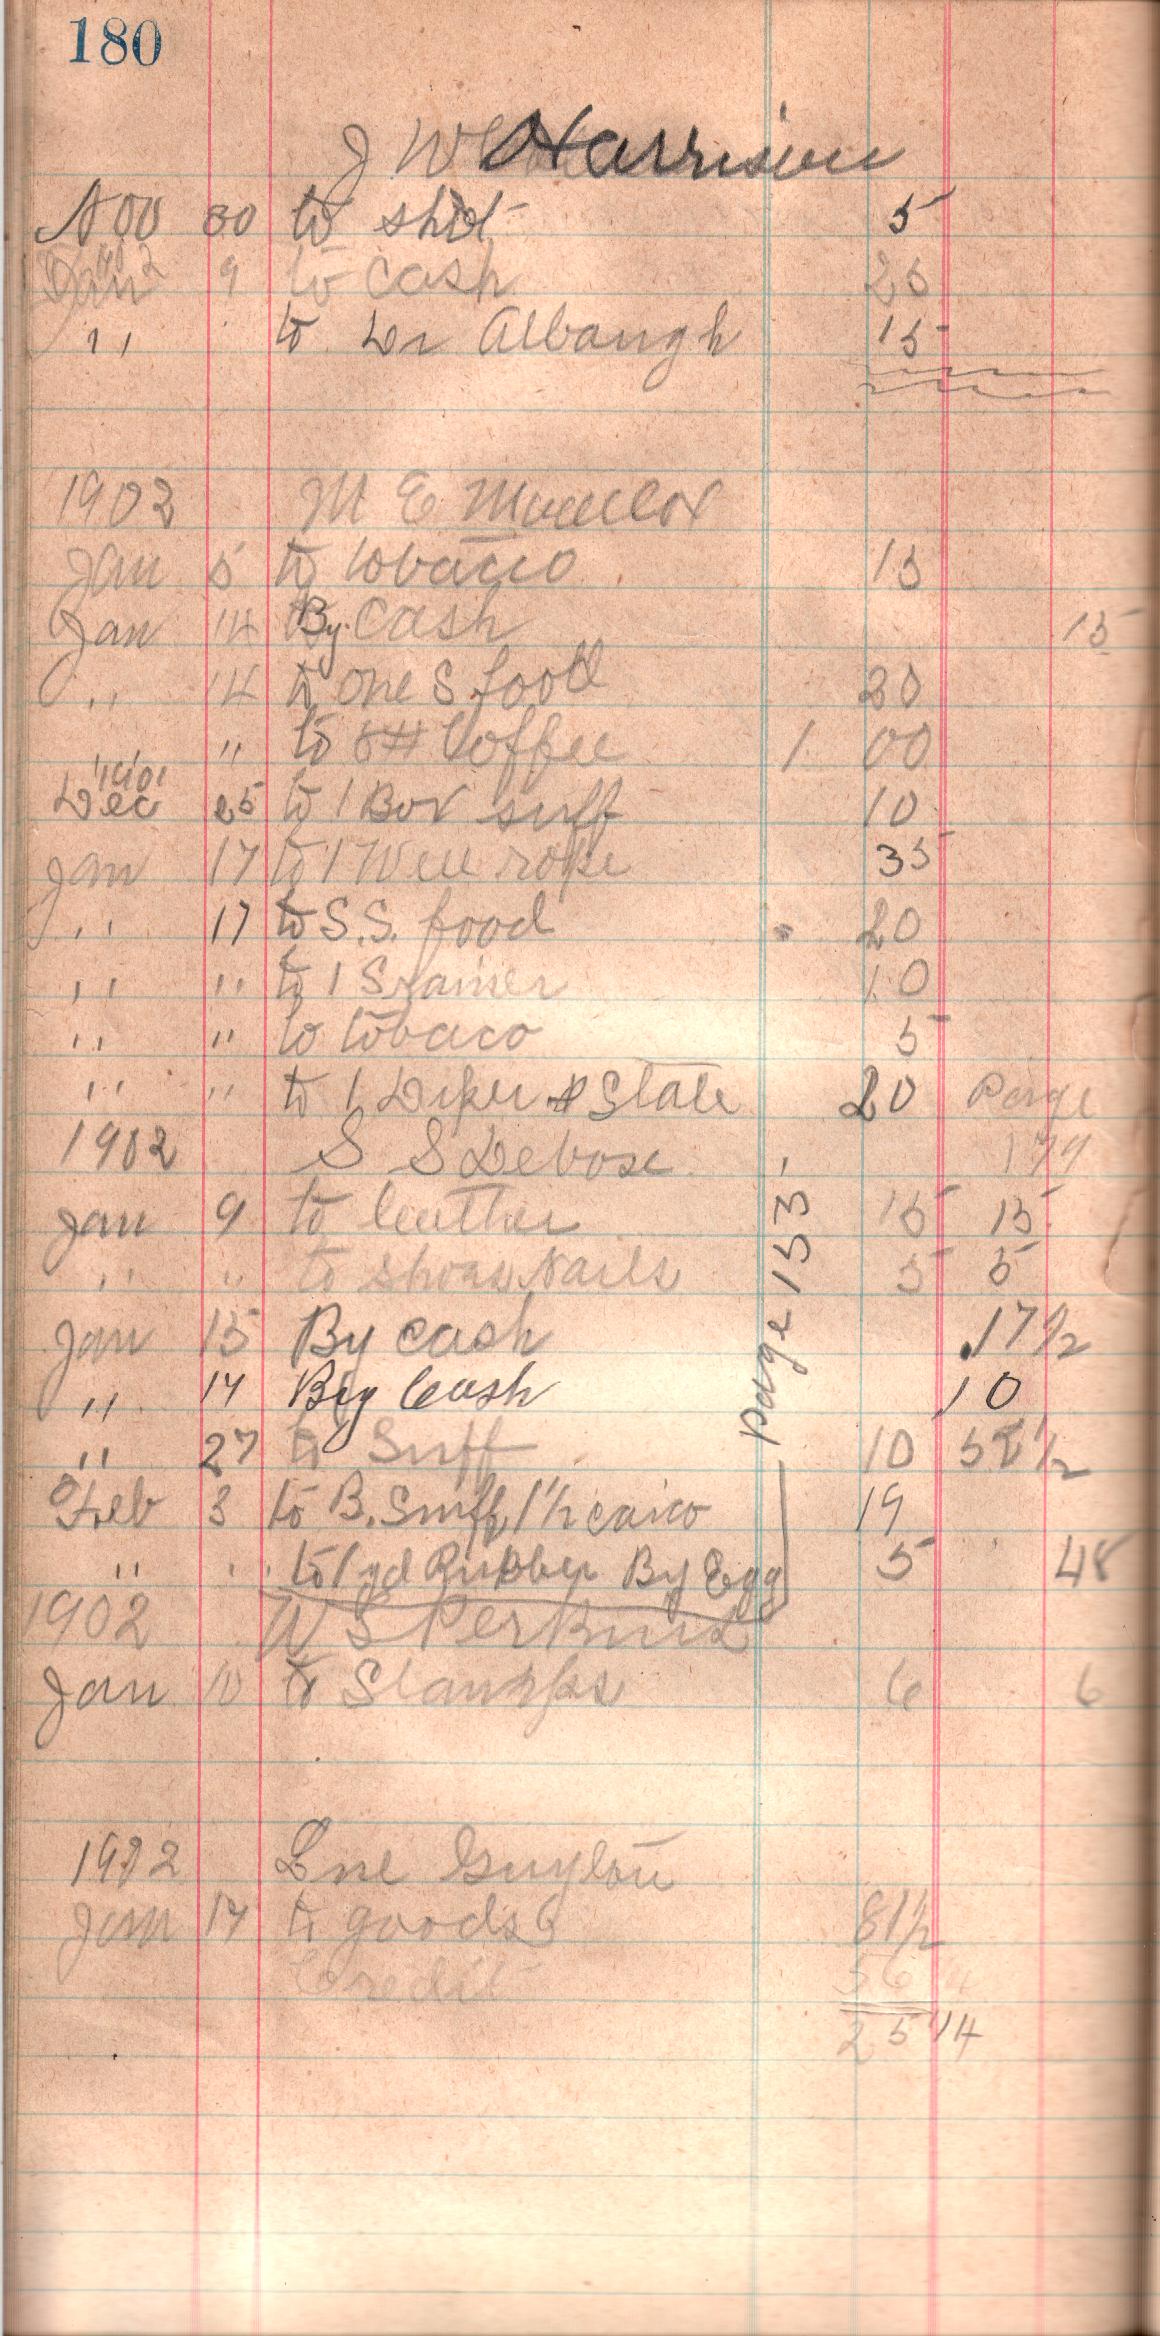 180
J W Harrison
Nov 30 to shot 5
Jan 1902 9 to cash 25
" to Dr Albaugh 15
1902 M E
Jan 5 to tobacco 15
Jan 14 By cash 15
" 14 to one S food 20
" to 8# Coffee 1 00
Dec 1901 25 to 1 Box snff 10
Jan 17 to 1 Well rope 35
" 17 to S.S. food 20
" " to 1 Srainer 10
" " to tobaco 5
" " to 1 Diper & State 20 Parge
1902 S S Debose 179
Jan 9 to leather 15 15
" " to shoes Nails 5 5
Jan 15 By cash 17 1/2
" 14 By Cash 10
" 27 to Snff 10 52 1/2
Feb 3 to B. Snuff 1 1/2 caico 19
" to 1 yd Rubber By Egg 5 48
parge 153
1902 W S Perkins
Jan 10 to Stamps 6 6
1902 Guyton
Jan 14 to goods 81 1/2
Credit 56
25 1/4